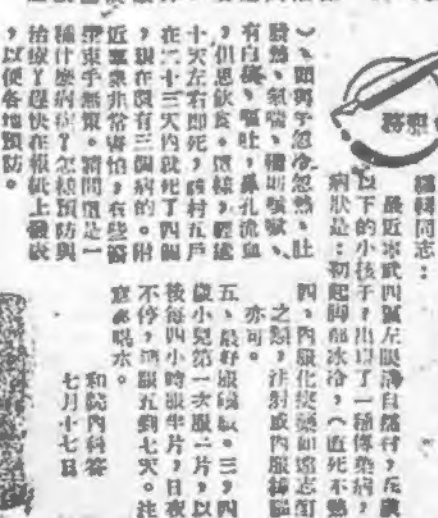 編輯同志:
最近武四區左眼溝自然村,在
以下的小孩子,出現了一種傳染病,
病狀是:初起脚部冰冷,(直死不熱
)、頭與手忽冷忽熱、吐
發熱、氣喘、咳嗽、
有白痰、嘔吐,鼻孔流血
,但思飲食。這樣,經過
十天左右即死,該村五戶
在二十三天內就死了四個
,現在還有三個病的。附
近羣衆非常害怕,有些醫
束手無策。請問這是一
種什麼病症?怎樣預防與
治療?趕快在報紙上發表
,以便各地預防。
四、內服化痰藥如遠志酊
之類,注射或內服樟腦
亦可。
五、最好服磺胺。三、四
歲小兒第一次服一片,以
後每四小時服半片,日夜
不停,連服五到七天。注
意多喝水。
和院內科答
七月十七日